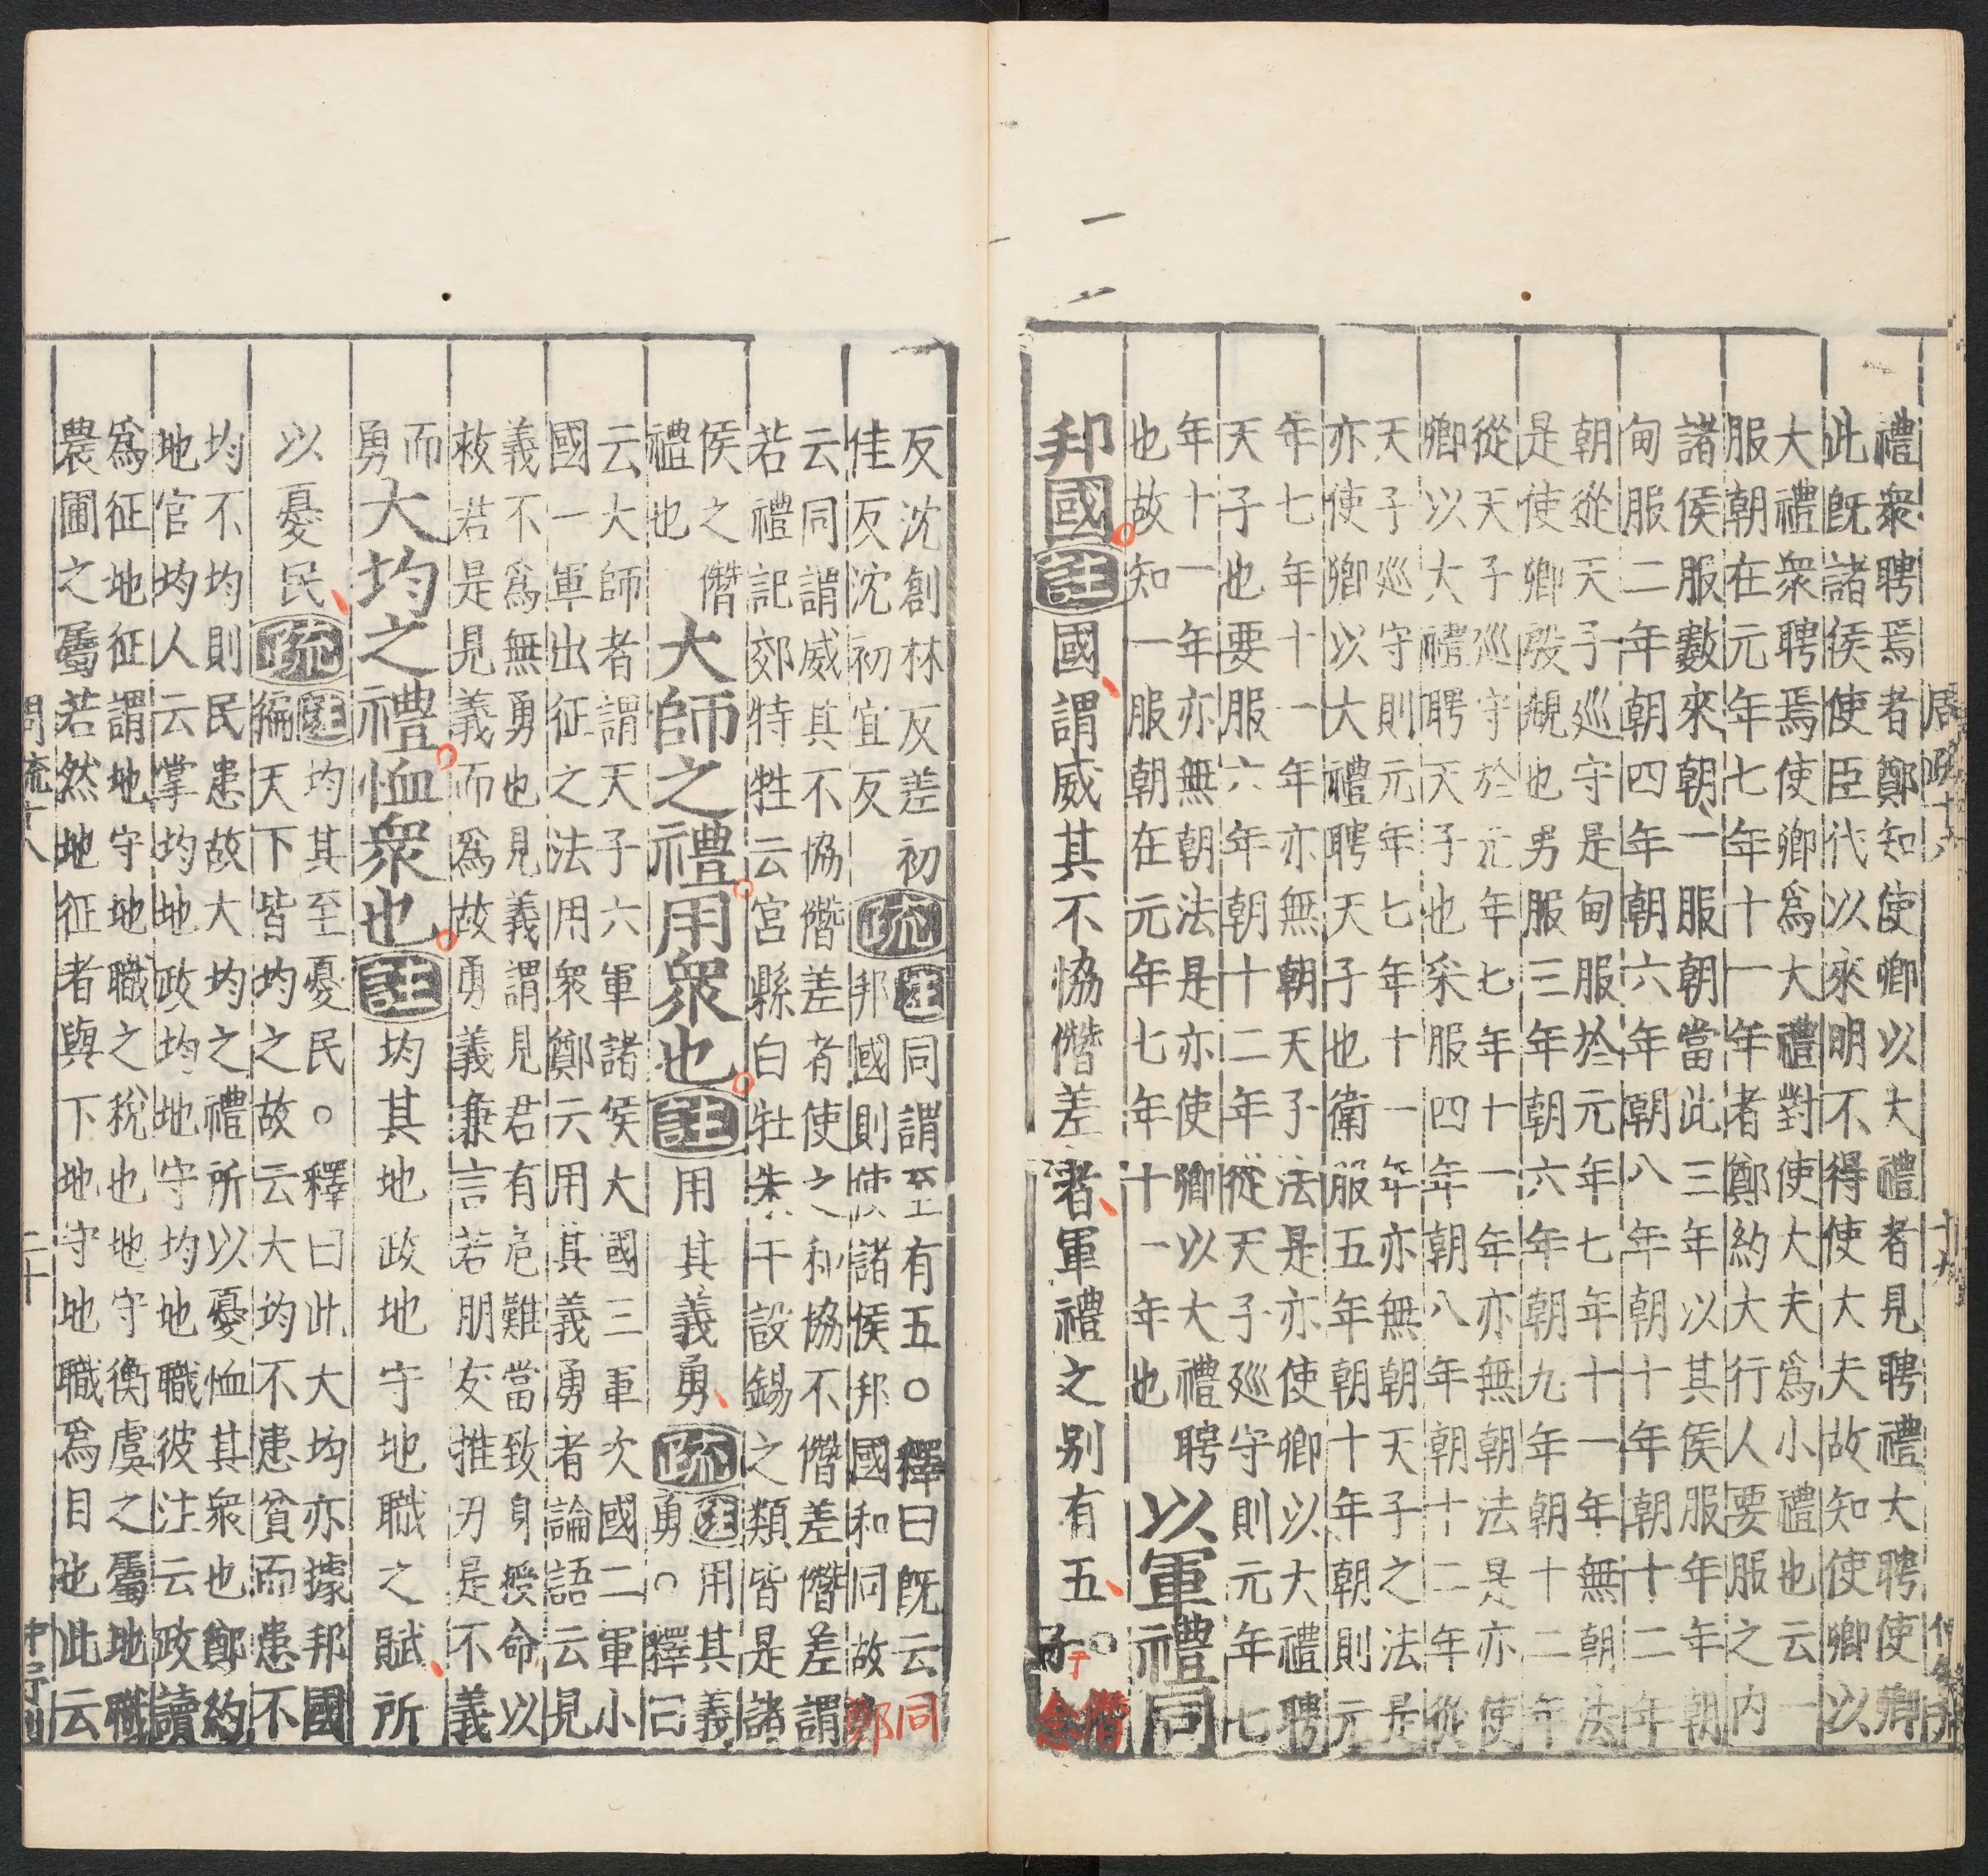 禮衆聘焉者鄭知使卿以大禮者見聘禮大聘使卿
此既諸侯使臣代以來明不得使大夫故知使卿以
大禮衆聘焉使卿爲大禮對使大夫爲小禮也云一
服朝在元年七年十一年者鄭約大行人要服之内
諸侯服數來朝一服朝當此三年以其侯服年年朝
甸服二年朝四年朝六年朝八年朝十年朝十二年
朝從天子巡守是甸服於元年七年十一年無朝法
是使卿殷覜也男服三年朝六年朝九年朝十二年
從天子巡守於元年七年十一年亦無朝法是亦使
卿以大禮聘天子也采服四年朝八年朝十二年從
天子巡守則元年七年十一年亦無朝天子之法是
亦使卿以大禮聘天子也衛服五年朝十年朝則元
年七年十一年亦無朝天子法是亦使卿以大禮聘
天子也要服六年朝十二年從天子巡守則元年七
年十一年亦無朝法是亦使卿以大禮聘
也故知一服朝在元年七年十一年也
以軍禮同
邦國
註
國謂威其不恊僭差者軍禮之别有五○
僭
子
念
周疏十八
十九
反沈創林反差初
佳反沈初宜反
疏
註
同謂至有五○釋曰既云同
邦國則使諸侯邦國和同故鄭
云同謂威其不協僭差者使之和協不僭差僭差謂
若禮記郊特牲云宮縣白牡朱干設錫之類皆是諸
侯之僭
禮也
大師之禮用衆也
註
用其義勇
疏
註
用其義
勇○釋曰
云大師者謂天子六軍諸侯大國三軍次國二軍小
國一軍出征之法用衆鄭云用其義勇者論語云見
義不爲無勇也見義謂見君有危難當致身授命以
救若是見義而爲故勇義兼言若朋友推刃是不義
而
勇
大均之禮恤衆也
註
均其地政地守地職之賦所
以憂民
疏
註
均其至憂民○釋曰此大均亦據邦國
徧天下皆均之故云大均不患貧而患不
均不均則民患故大均之禮所以憂恤其衆也鄭約
地官均人云掌均地政均地守均地職彼注云政讀
爲征地征謂地守地職之稅也地守衡虞之屬地職
農圃之屬若然地征者與下地守地職爲目也此云
周疏十八
二十